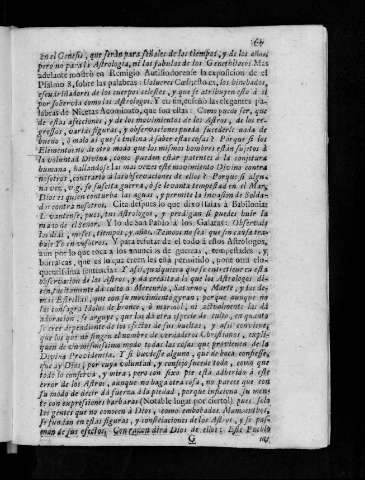 en el Genesis, que seràn para señales de los tiempos, y de los años,
pero no para la Astrologia, ni las fabulas de los Genethliacos. Mas
adelante mostrò en Remigio Autisiodorense la exposicion de el
Psalmo 8, sobre las palabras: Volucres Cœli; esto es, los hinchados,
escudriñadores de los cuerpos celestes, y que se atribuyen esto à si
por sobervia como los Astrologos. Y en fin, enseñò las elegantes pa-
labras de Nicetas Acominato, que son estas: Como puede ser, que
de estas afecciones, y de los movimientos de los Astros, de los re-
gressos, varias figuras, y observaciones pueda suceder nada de
bueno, ò malo al que se inclina à saber estas cosas? Porque si los
Elementos no de otro modo que los mismos hombres están sujetos à
la voluntad Divina, como pueden estar patentes à la conjetura
humana, hallandose las mas vezes este movimiento Divino contra
nosotros, contrario à las observaciones de ellos? Porque si algu-
na vez, v.g. se suscita guerra, ò se levanta tempestad en el Mar,
Dios es quien conturba las aguas, y permite la invasion de Solda-
dos contra nosotros. Cita despues lo que dixo Isaias à Babilonia:
Levantense, pues, tus Astrologos, y predigan si puedes huir la
mano de el Señor. Y lo de San Pablo à los Galatas: Observais
los dias, meses, tiempos, y años. Temo os no sea que sin causa tra-
baje Yo en vosotros. Y para refutar de el todo à estos Astrologos,
aun por lo que toca à los anuncios de guerras, tempestades, y
borrascas, que es lo que creen les está permitido, pone otra elo-
quentissima sentencia: Y assi, qualquiera que se exercitare en esta
observacion de los Astros, y dà credito à lo que los Astrologos di-
cen, tacitamente dà culto à Mercurio, Saturno, Marte, y los de-
mas Estrellas, que con su movimiento gyran; porque aunque no
les consagra Idolos de bronce, ò marmol, ni actualmente les dà
adoracion, se arguye, que les dà otra especie de culto, en quanto
se cree dependiente de los efectos de sus bueltas; y assi conviene,
que los que se ciñen el nombre de verdaderos Christianos, repli-
quen de validissimo modo todas las cosas que provienen de la
Divina Providencia. Y si huviesse alguno, que de boca, confiesse,
que ay Dios, por cuya voluntad, y consejo sucede todo, como que
todo lo conserva, y mira; pero con fixo pie està adherido à este
error de los Astros, aunque no haga otra cosa, no parece que con
su modo de decir dà fuerza à la piedad, porque inficiona su mente
te con expressiones barbaras (Notable lugar por cierto!) pues solo
los gentes que no conocen à Dios, como embobados Mamonthos,
se fundan en estas figuras, y constelaciones de los Astros, y se pas-
man de sus efectos. Con razon dirà Dios de ellos: Este Pueblo
G